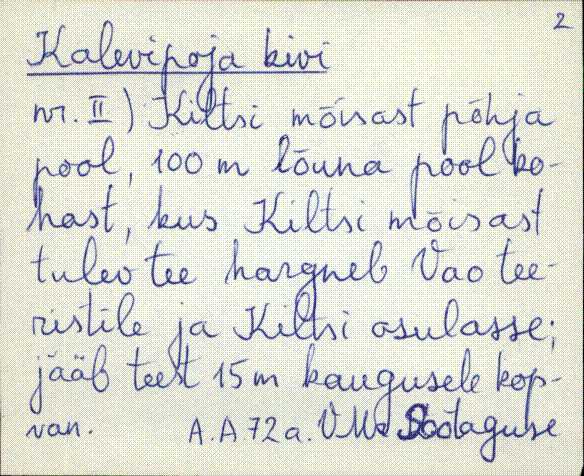 2
Kalevipoja kivi
nr. II) Kiltsi mõisast põhja
pool, 100 m lõuna pool ko-
hast, kus Kiltsi mõisast
tulev tee hargneb Vao tee-
ristile ja Kiltsi asulasse;
jääb teest 15m kaugusele kop-
van. A.A.72a. VMr